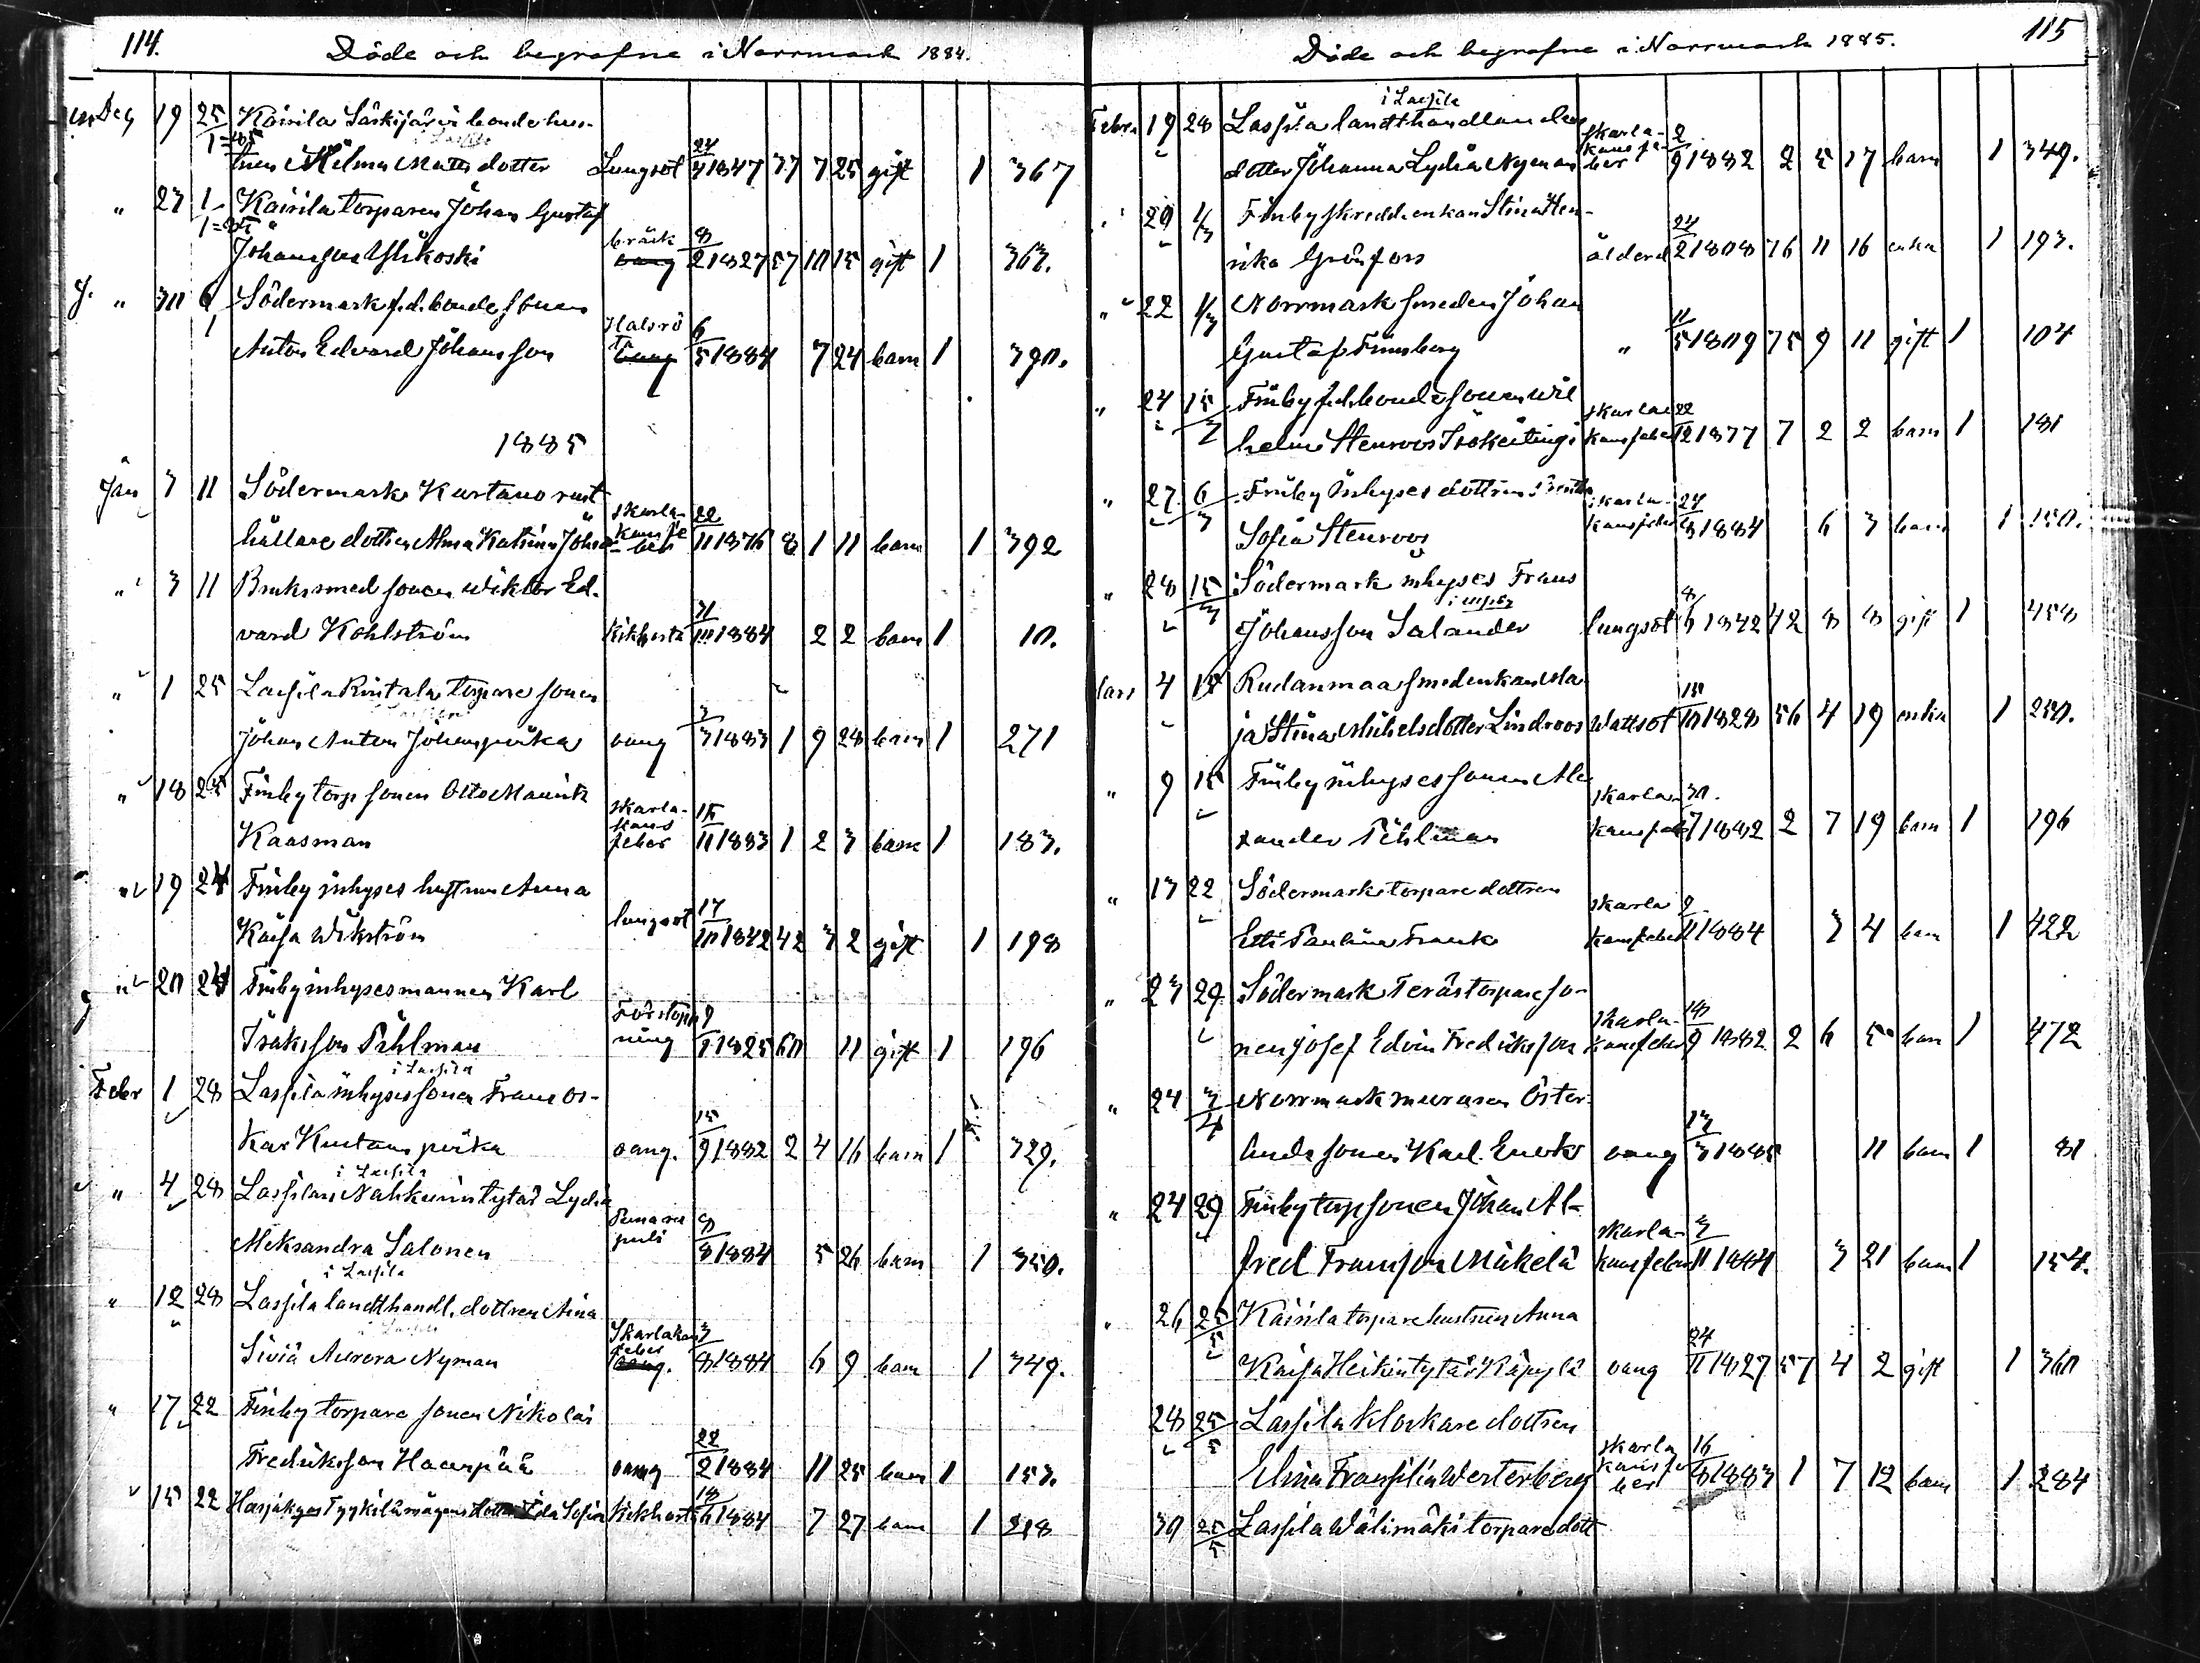 114.
Döde och begrafne i Norrmark 1884.
Dec 19 25/1=85 Kairila Särkijärvi bonde hus-
trun Hilma Matts dotter Lungsot 24/4 1847 37 7 25 gift 1 367
" 27 1/1=85 Kairila torparen Johan Gustaf
Johansson Ylikoski bräck 8/2 1827 57 10 15 gift 1 363.
" 30 6/1 Södermark f.d. bonde sonen
Anton Edvard Johansson Halsrö 6/5 1884 7 24 barn 1 390.
1885
Jan 3 11 Södermark Kartano rust
hållare dottren Alma Katrina Johans skarla-kansfeber 22/11 1876 8 1 11 barn 1 392
" 3 11 Bruksmed sonen Wiktor Ed-
vard Kohlström Kikhosta 31/10 1884 2 2 barn 1 10.
" 1 25 Lassila Rintala torpare sonen
Johan Anton Johanpoika oang 3/3 1883 1 9 28 barn 1 271
" 18 25 Finby torp sonen Otto Maurits
Kaasman skarla-kans feber 15/11 1883 1 2 3 barn 1 183.
" 19 24 Finby inhyses hustrun Anna
Kaisa Wikström lungsot 17/10 1842 42 3 2 gift 1 198
" 20 24 Finby inhysesmannen Karl
Isaksson Påhlman Förstopp ning 9/1 1825 60 11 gift 1 196
i Lassila
Febr 1 28 Lassila inhyses sonen Frans Os-
kar Kustaanpoika oang. 15/9 1882 2 4 16 barn 1 329.
i Lassila
" 4 28 Lassilan Nahkurin tytär Lydia
Aleksandra Salonen Punarupuli 9/8 1884 5 26 barn 1 350.
i Lassila
" 12 28 Lassila landthandl. dottren Aina
Siviä Aurora Nyman Skarlakansfeber 3/8 1884 6 9 barn 1 349.
" 17 22 Finby torpare sonen Nikolai
Fredriksson Haanpää oang 22/2 1884 11 25 barn 1 153.
" 15 22 Harjakangas Tyykiluoto dotter Ida Sofia Kikhosta 18/6 1884 7 27 barn 1 218
115
Döde och begrafne i Norrmark 1885.
i Lassila
Febr. 19 28 Lassila landthandlanden
dotter Johanna Lydia Nyman skarla-kansfeber 2/9 1882 2 5 17 barn 1 349.
" 20 1/3 Finby skreddenkan Stina Hen-
rika Grönfors ålderd 24/2 1808 76 11 16 enka 1 193.
" 22 1/3 Norrmark smeden Johan
Gustaf Finnberg " 11/5 1809 75 9 11 gift 1 104
" 24 15/3 Finby f.d. bonde sonen Wil
helm Stenroos Isokeitingi skarla kansfeber 22/12 1877 7 2 2 barn 1 181
" 27 6/3 Finby Inhyses dottren
Sofia Stenroos skarla-kansfeber 24/8 1884 6 3 barn 1 150.
" 28 15/3 Södermark inhyses Frans
Johansson Salander lungsot 8/6 1842 42 8 8 gift 1 458
Mars 4 15 Rudanmaa smedenkan Ma
ja Stina Mikelsdotter Lindroos Wattsot 15/10 1828 56 4 19 enka 1 250.
" 9 15 Finby inhyses sonen Ale
xander Påhlman skarlakansfeber 30/7 1882 2 7 19 barn 1 196
" 13 22 Södermark torpare dottren
Etti Paulina Frank skarlakansfeber 9/11 1884 3 4 barn 1 422
" 23 29 Södermark Terästorpare so-
nen Josef Edvin Fredriksson skarla-kansfeber 18/9 1882 2 6 5 barn 1 472
" 24 3/4 Norrmark muraren Öster-
lunds sonen Karl oang 13/3 1885 11 barn 1 81
" 24 29 Finby torpsonen Johan Al-
fred Fransson Mäkelä skarla-kansfeber 3/11 1884 3 21 barn 1 154.
" 26 25/5 Kairila torpare hustrun Anna
Kaisa Heikintytär Käpylä oang 24/11 1827 57 4 2 gift 1 360
28 25/5 Lassila klockare dottren
Elina Fransilia Westerberg skarlakansfeber 16/8 1883 1 7 12 barn 1 284
30 25/5 Lassila Wälimäki torpare dott